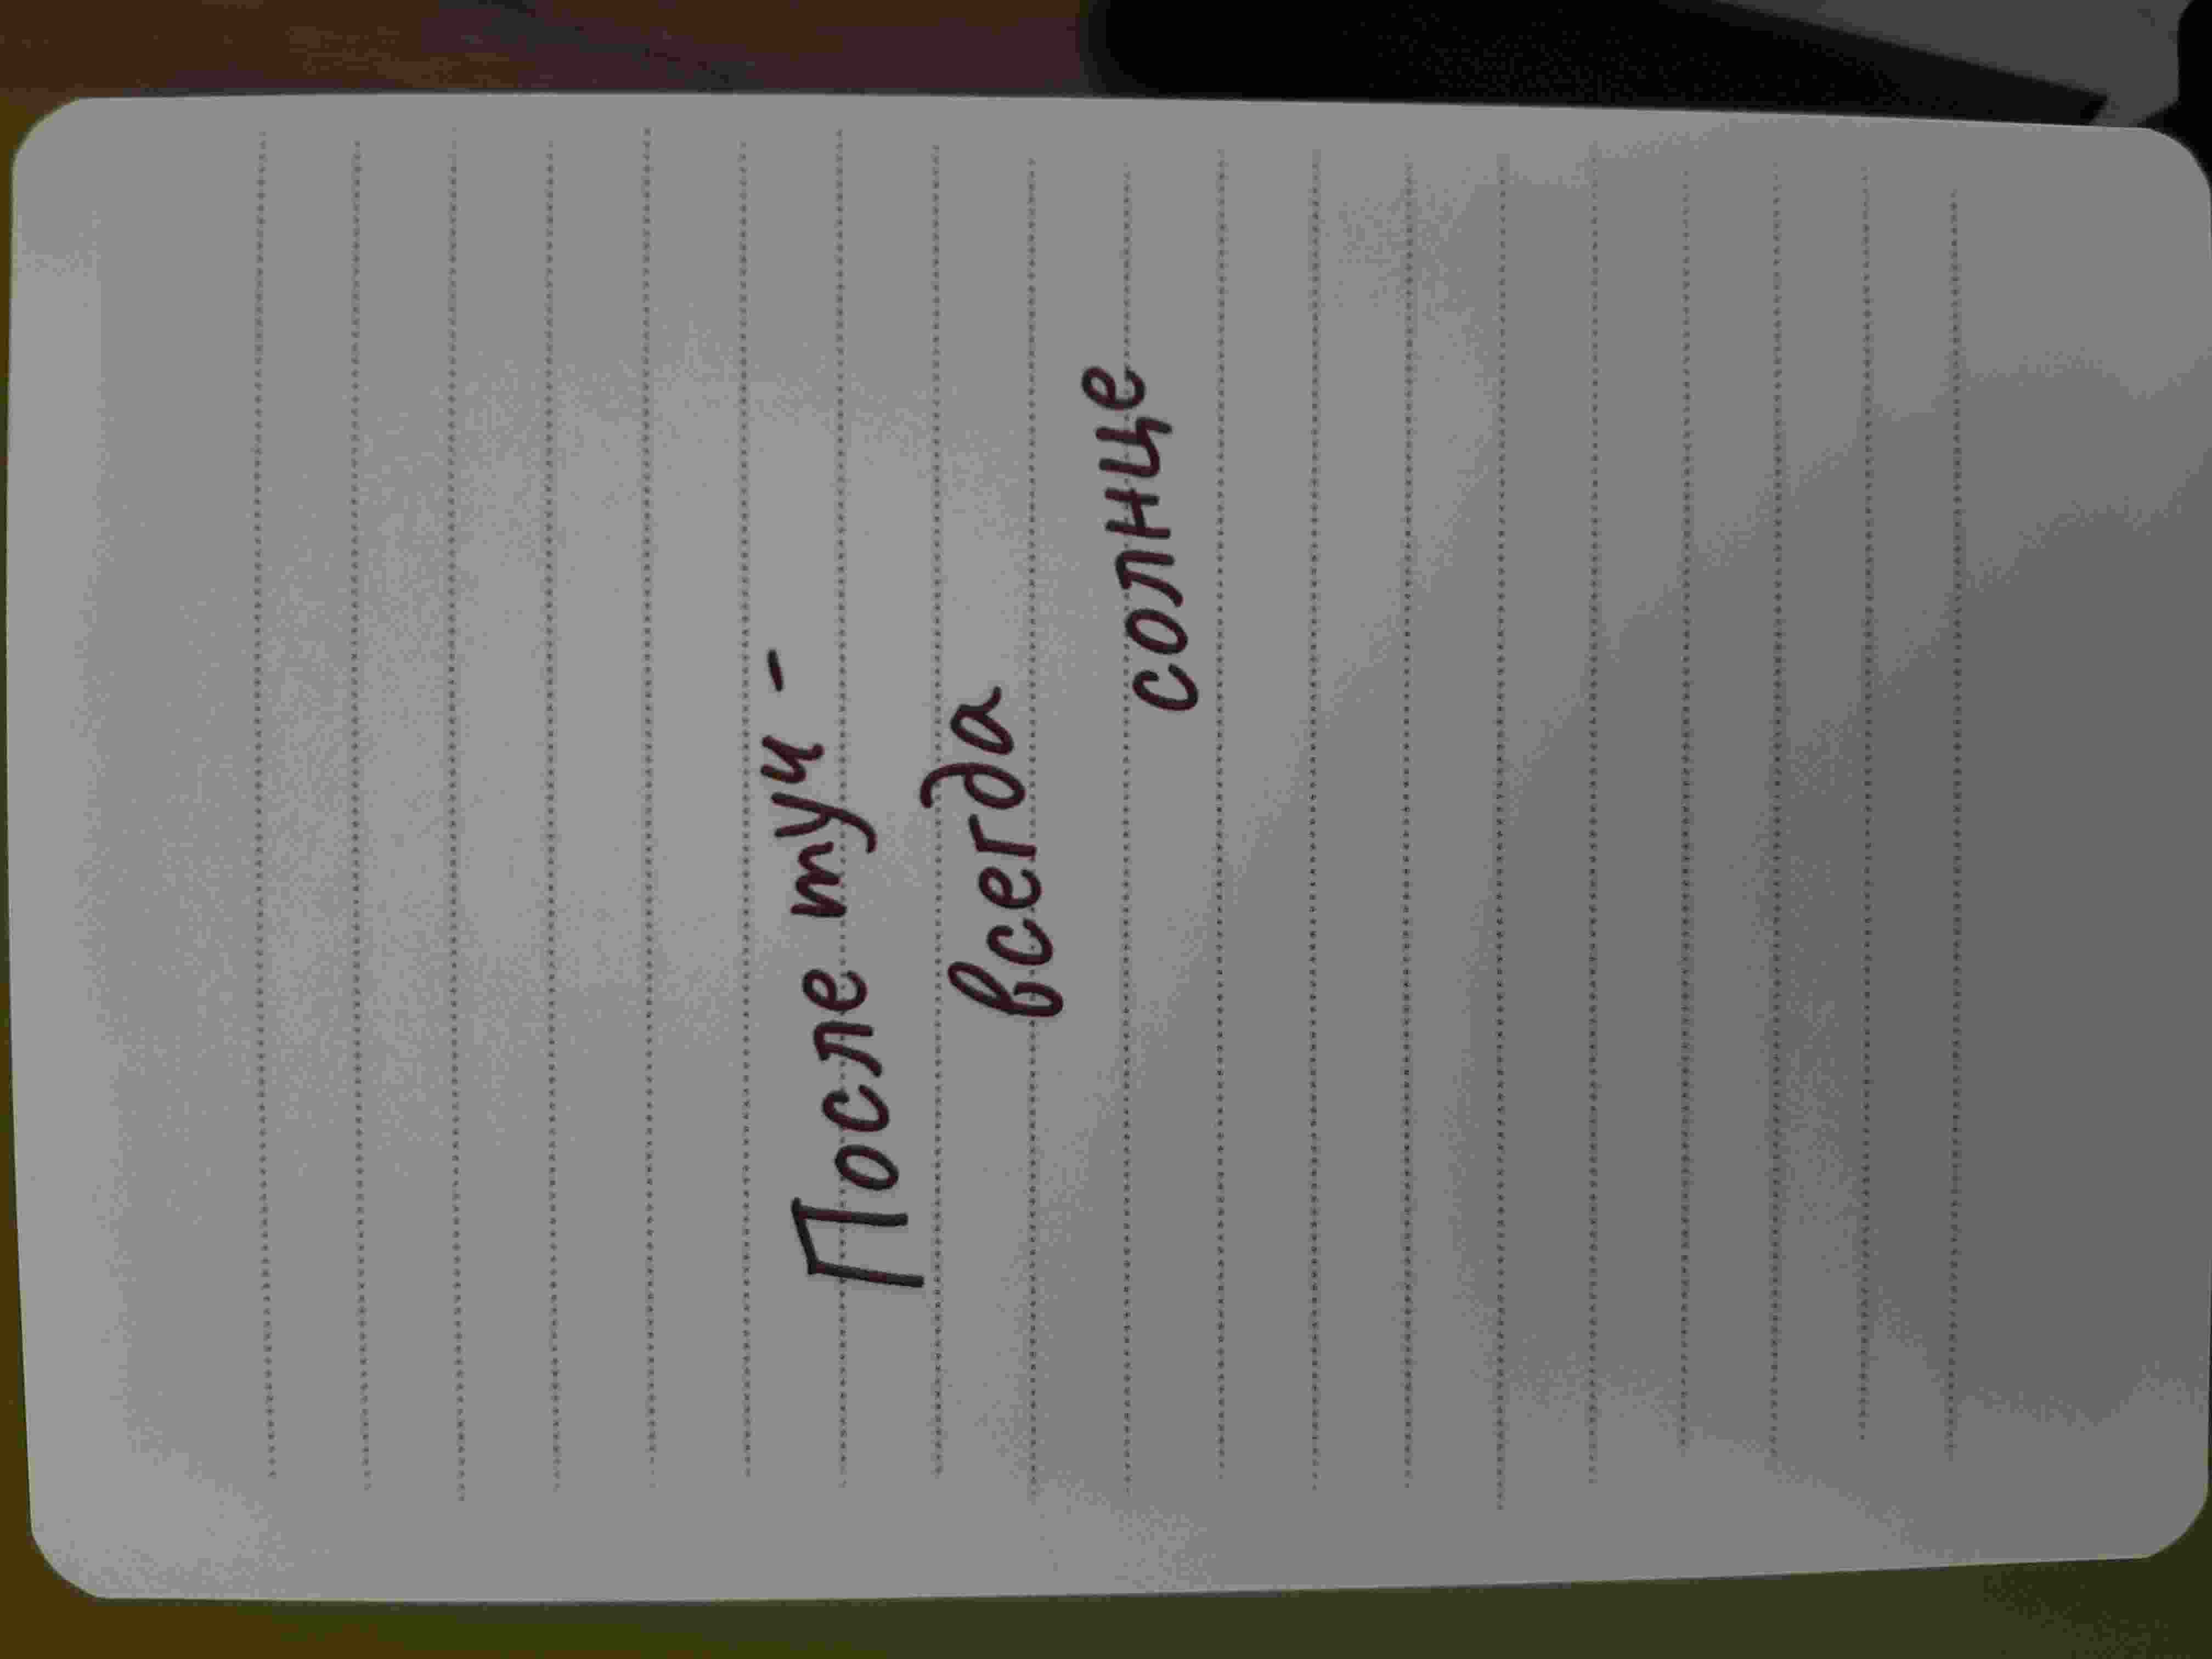 После туч -
всегда
солнце